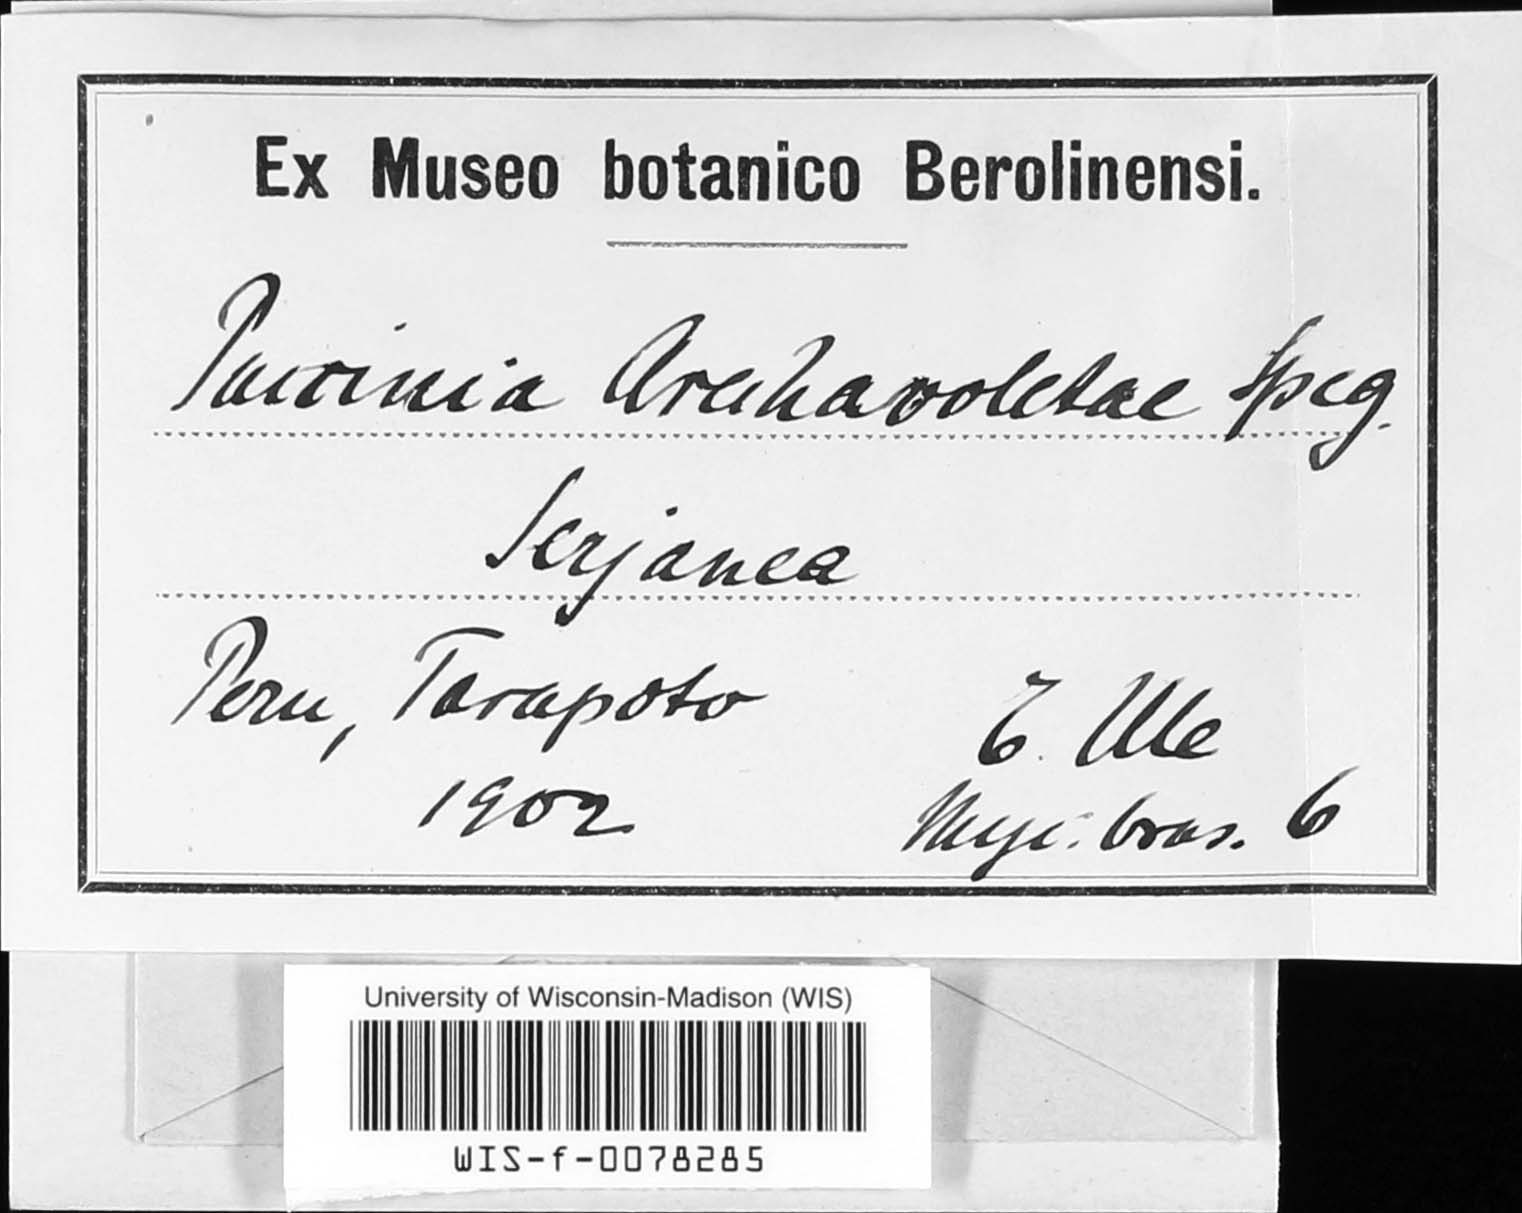 Ex Museo botanico Berolinensi.
Puccinia Arechavoletae Speg.
Serjanea
Peru, Tarapoto
E. Ule
1902
Myc. bras. 6
University of Wisconsin-Madison (WIS)
WIS-f-0078285